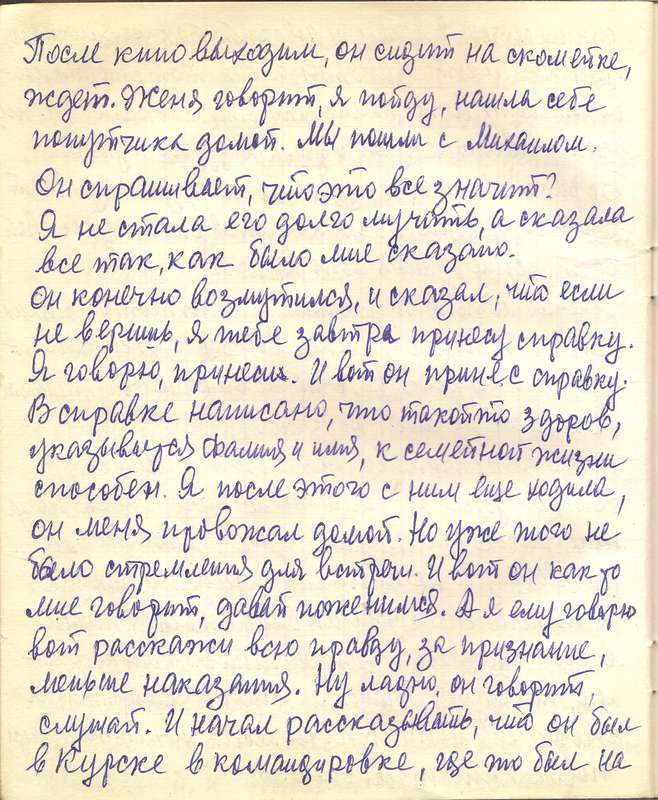 После кино выходим, он сидит на скомейке,
ждет. Женя говорит, я пойду, нашла себе
попутчика домой. Мы пошли с Михаилом.
Он спрашивает, что это все значит?
Я не стала его долго мучить, а сказала
все так, как было мне сказано.
Он конечно возмутился, и сказал, что если
не веришь, я тебе завтра принесу справку.
Я говорю, принеси. И вот он принес справку.
В справке написано, что такойто здоров,
указывается фамилия и имя, к семейной жизни
способен. Я после этого с ним еще ходила,
он меня провожал домой. Но уже того не
было стремления для встречи. И вот он как то
мне говорит, давай поженимся. А я ему говорю
вот расскажи всю правду, за признание,
меньше наказания. Ну ладно, он говорит,
слушай. И начал рассказывать, что он был
в Курске в командировке, где то был на